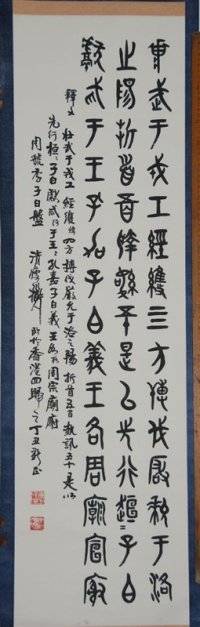 壯武于戎工經維四方搏伐厰狁于洛
之陽折首五百執訊五十是以先行桓=子白
獻馘于王=孔加子白義王各周廟宣廚
釋文 壯武于戎工經維四方搏伐嚴允于洛之陽折首五百執訊五十是以
先行桓=子白獻馘于王=孔嘉子白義王
周虢季子白盤 於香港回歸之丁丑秋